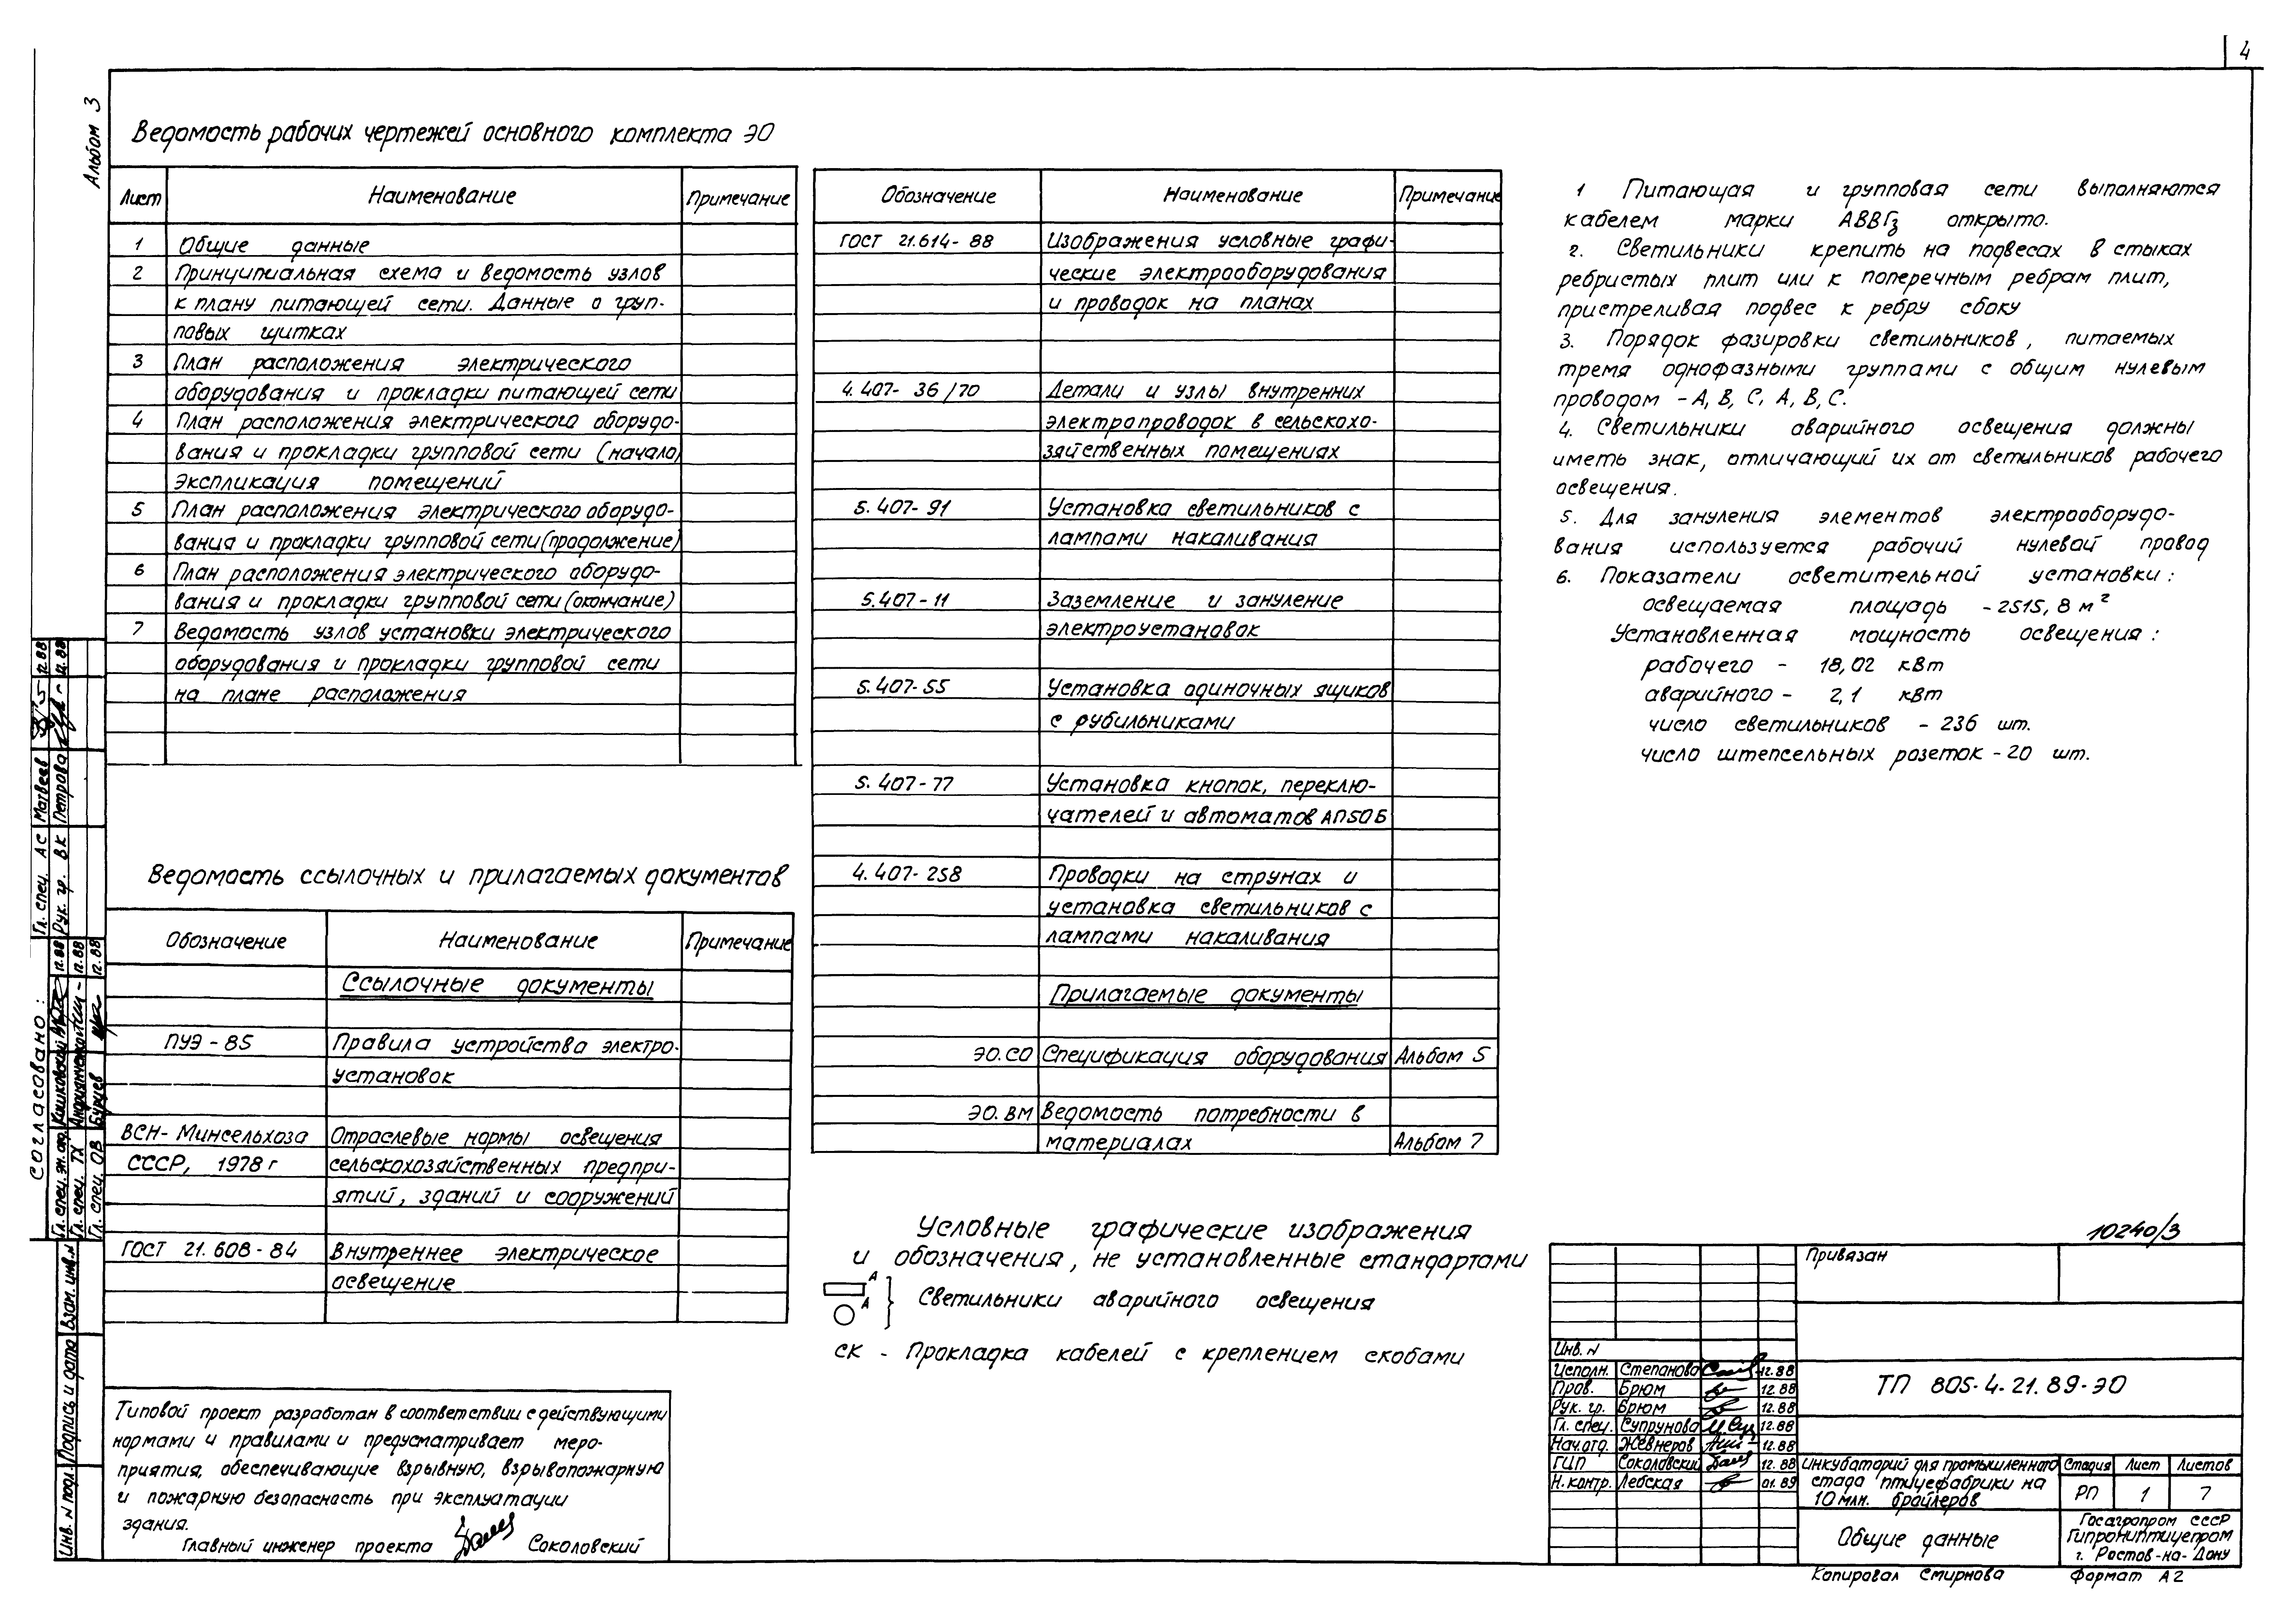 4
Альбом 3
Ведомость рабочих чертежей основного комплекта ЭО
Лист Наименование Примечание
1 Общие данные
2 Принципиальная схема и ведомость узлов
к плану питающей сети. Данные о груп-
повых щитках
3 План расположения электрического
оборудования и прокладки питающей сети
4 План расположения электрического оборудо-
вания и прокладки групповой сети (начало)
Экспликация помещений
5 План расположения электрического оборудо-
вания и прокладки групповой сети (продолжение)
6 План расположения электрического оборудо-
вания и прокладки групповой сети (окончание)
7 Ведомость узлов установки электрического
оборудования и прокладки групповой сети
на плане расположения
Ведомость ссылочных и прилагаемых документов
Обозначение Наименование Примечание
Ссылочные документы
ПУЭ - 85 Правила устройства электро-
установок
ВСН - Минсельхоза Отраслевые нормы освещения
СССР, 1978 г сельскохозяйственных предпри-
ятий, зданий и сооружений
ГОСТ 21.608-84 Внутреннее электрическое
освещение
Типовой проект разработан в соответствии с действующими
нормами и правилами и предусматривает меро-
приятия, обеспечивающие взрывную, взрывопожарную
и пожарную безопасность при эксплуатации
здания.
Главный инженер проекта Соколовский
Обозначение Наименование Примечание
ГОСТ 21.614-88 Изображения условные графи-
ческие электрооборудования
и проводок на планах
4.407-36/70 Детали и узлы внутренних
электропроводок в сельскохо-
зяйственных помещениях
5.407-91 Установка светильников с
лампами накаливания
5.407-11 Заземление и зануление
электроустановок
5.407-55 Установка одиночных ящиков
с рубильниками
5.407-77 Установка кнопок, переклю-
чателей и автоматов АП50Б
4.407-258 Проводки на струнах и
установка светильников с
лампами накаливания
Прилагаемые документы
ЭО.СО Спецификация оборудования Альбом 5
ЭО.ВМ Ведомость потребности в
материалах Альбом 7
Условные графические изображения
и обозначения, не установленные стандартами
А
А
Светильники аварийного освещения
СК - Прокладка кабелей с креплением скобами
1 Питающая и групповая сети выполняются
кабелем марки АВВГз открыто.
2. Светильники крепить на подвесах в стыках
ребристых плит или к поперечным ребрам плит,
пристреливая подвес к ребру сбоку
3. Порядок фазировки светильников, питаемых
тремя однофазными группами с общим нулевым
проводом - А, В, С, А, В, С.
4. Светильники аварийного освещения должны
иметь знак, отличающий их от светильников рабочего
освещения.
5. Для зануления элементов электрооборудо-
вания используется рабочий нулевой провод
6. Показатели осветительной установки:
освещаемая площадь - 2515,8 м²
Установленная мощность освещения:
рабочего - 18,02 кВт
аварийного - 2,1 кВт
число светильников - 236 шт.
число штепсельных розеток - 20 шт.
10240/3
Привязан
Инв. N
Исполн. Степанова 12.88
Пров. Брюм 12.88
Рук. гр. Брюм 12.88
Гл. спец. Супрунова 12.88
Нач. отд. Жевнеров 12.88
ГИП Соколовский 12.88
Н. контр. Лебская 01.89
ТП 805-4-21.89-ЭО
Инкубаторий для промышленного
стада птицефабрики на
10 млн. бройлеров
Стадия Лист Листов
РП 1 7
Общие данные
Госагропром СССР
Гипрониптицепром
г. Ростов-на-Дону
Копировал Смирнова Формат А2
Согласовано:
Гл. спец. АС Матвеев 12.88
Рук. гр. ВК Петрова 12.88
Кашковский 12.88
Гл. спец. ТХ 12.88
Гл. спец. ОВ Бурцев 12.88
Инв. N подл. Подпись и дата Взам. инв. N